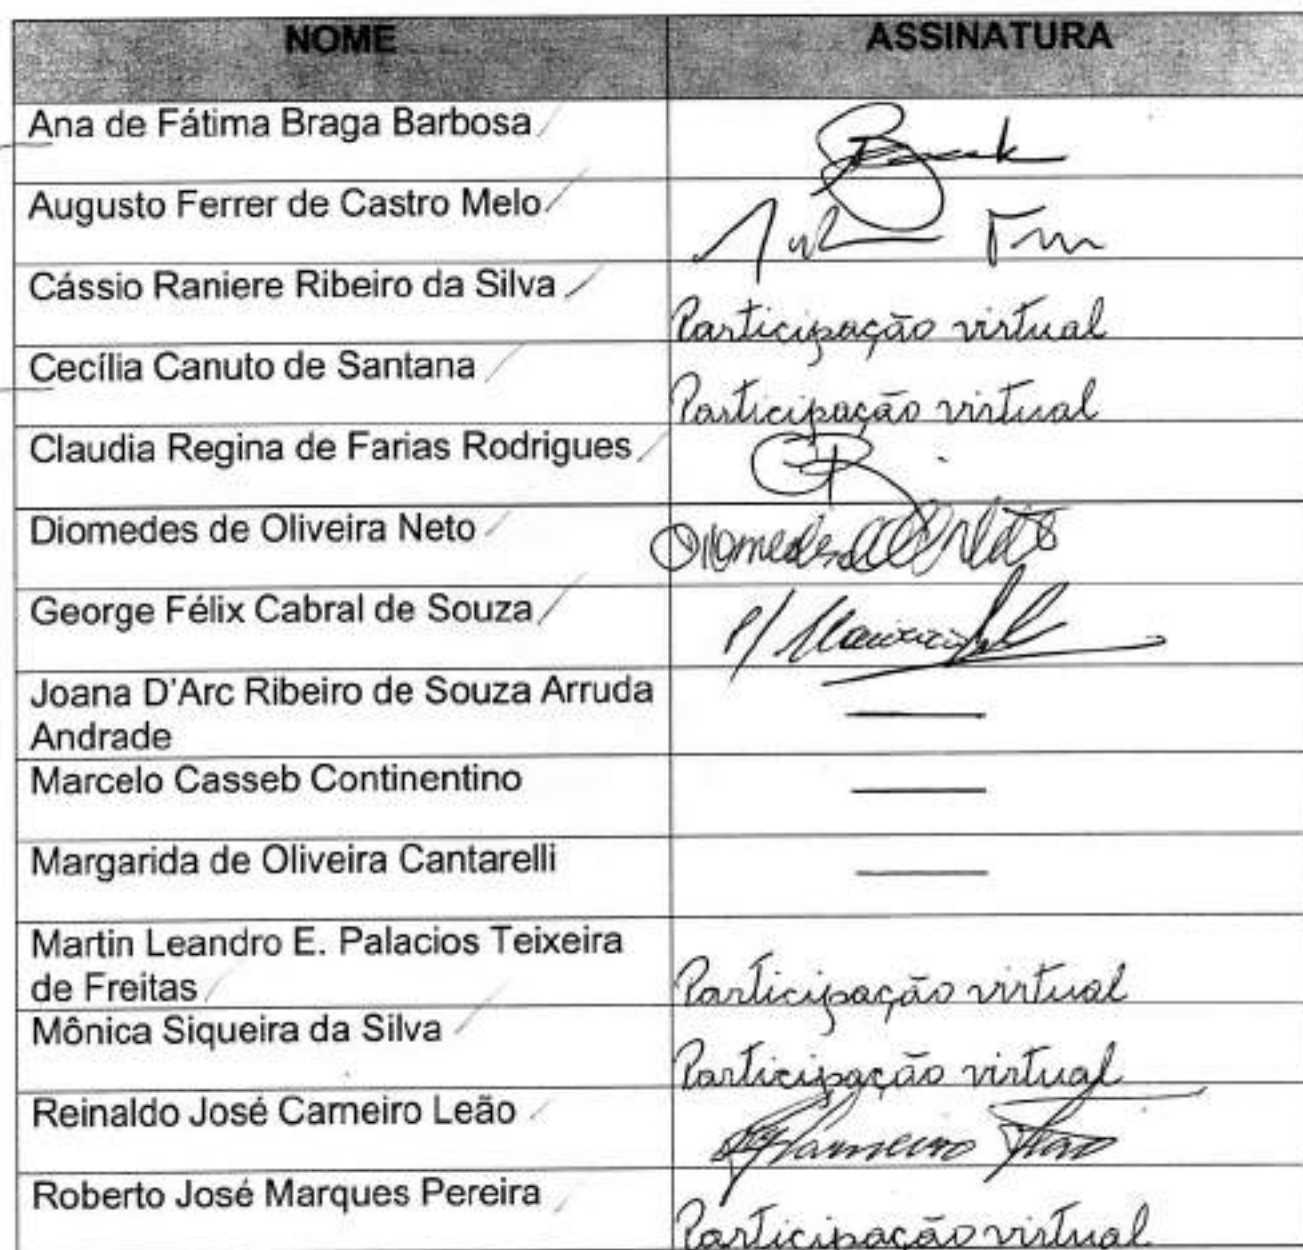 NOME ASSINATURA
Ana de Fátima Braga Barbosa
Augusto Ferrer de Castro Melo
Cássio Raniere Ribeiro da Silva Participação virtual
Cecília Canuto de Santana Participação virtual
Claudia Regina de Farias Rodrigues
Diomedes de Oliveira Neto Diomedes
George Félix Cabral de Souza P/
Joana D'Arc Ribeiro de Souza Arruda
Andrade
Marcelo Casseb Continentino
Margarida de Oliveira Cantarelli
Martin Leandro E. Palacios Teixeira
de Freitas Participação virtual
Mônica Siqueira da Silva Participação virtual
Reinaldo José Carneiro Leão Carneiro Leão
Roberto José Marques Pereira Participação virtual